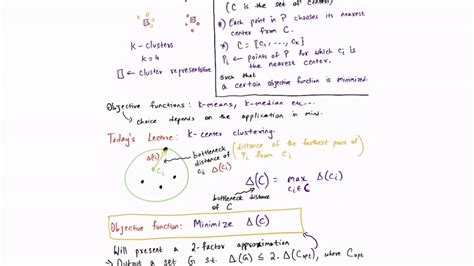 (C is the set of centers)
*) Each point in P chooses its nearest
center from C.
*) C = {C₁, ..., Cₖ}
Pᵢ ← points of P for which cᵢ is
the nearest center.
Such that
a certain objective function is Minimized.
K-clusters
K=4
← cluster representative
Objective functions: K-means, K-median etc...
choice depends on the application in mind.
Today's Lecture: K-center clustering.
Δ(Cᵢ)
Cᵢ
bottleneck
distance of
Cᵢ Δ(Cᵢ)
(distance of the farthest point of
Pᵢ from Cᵢ)
Δ(C) = max Δ(Cᵢ)
Cᵢ∈C
bottleneck distance
of C
Objective function: Minimize Δ(C)
Will present a 2-factor approximation
→ Output a set G s.t. Δ(G) ≤ 2·Δ(Copt), where Copt